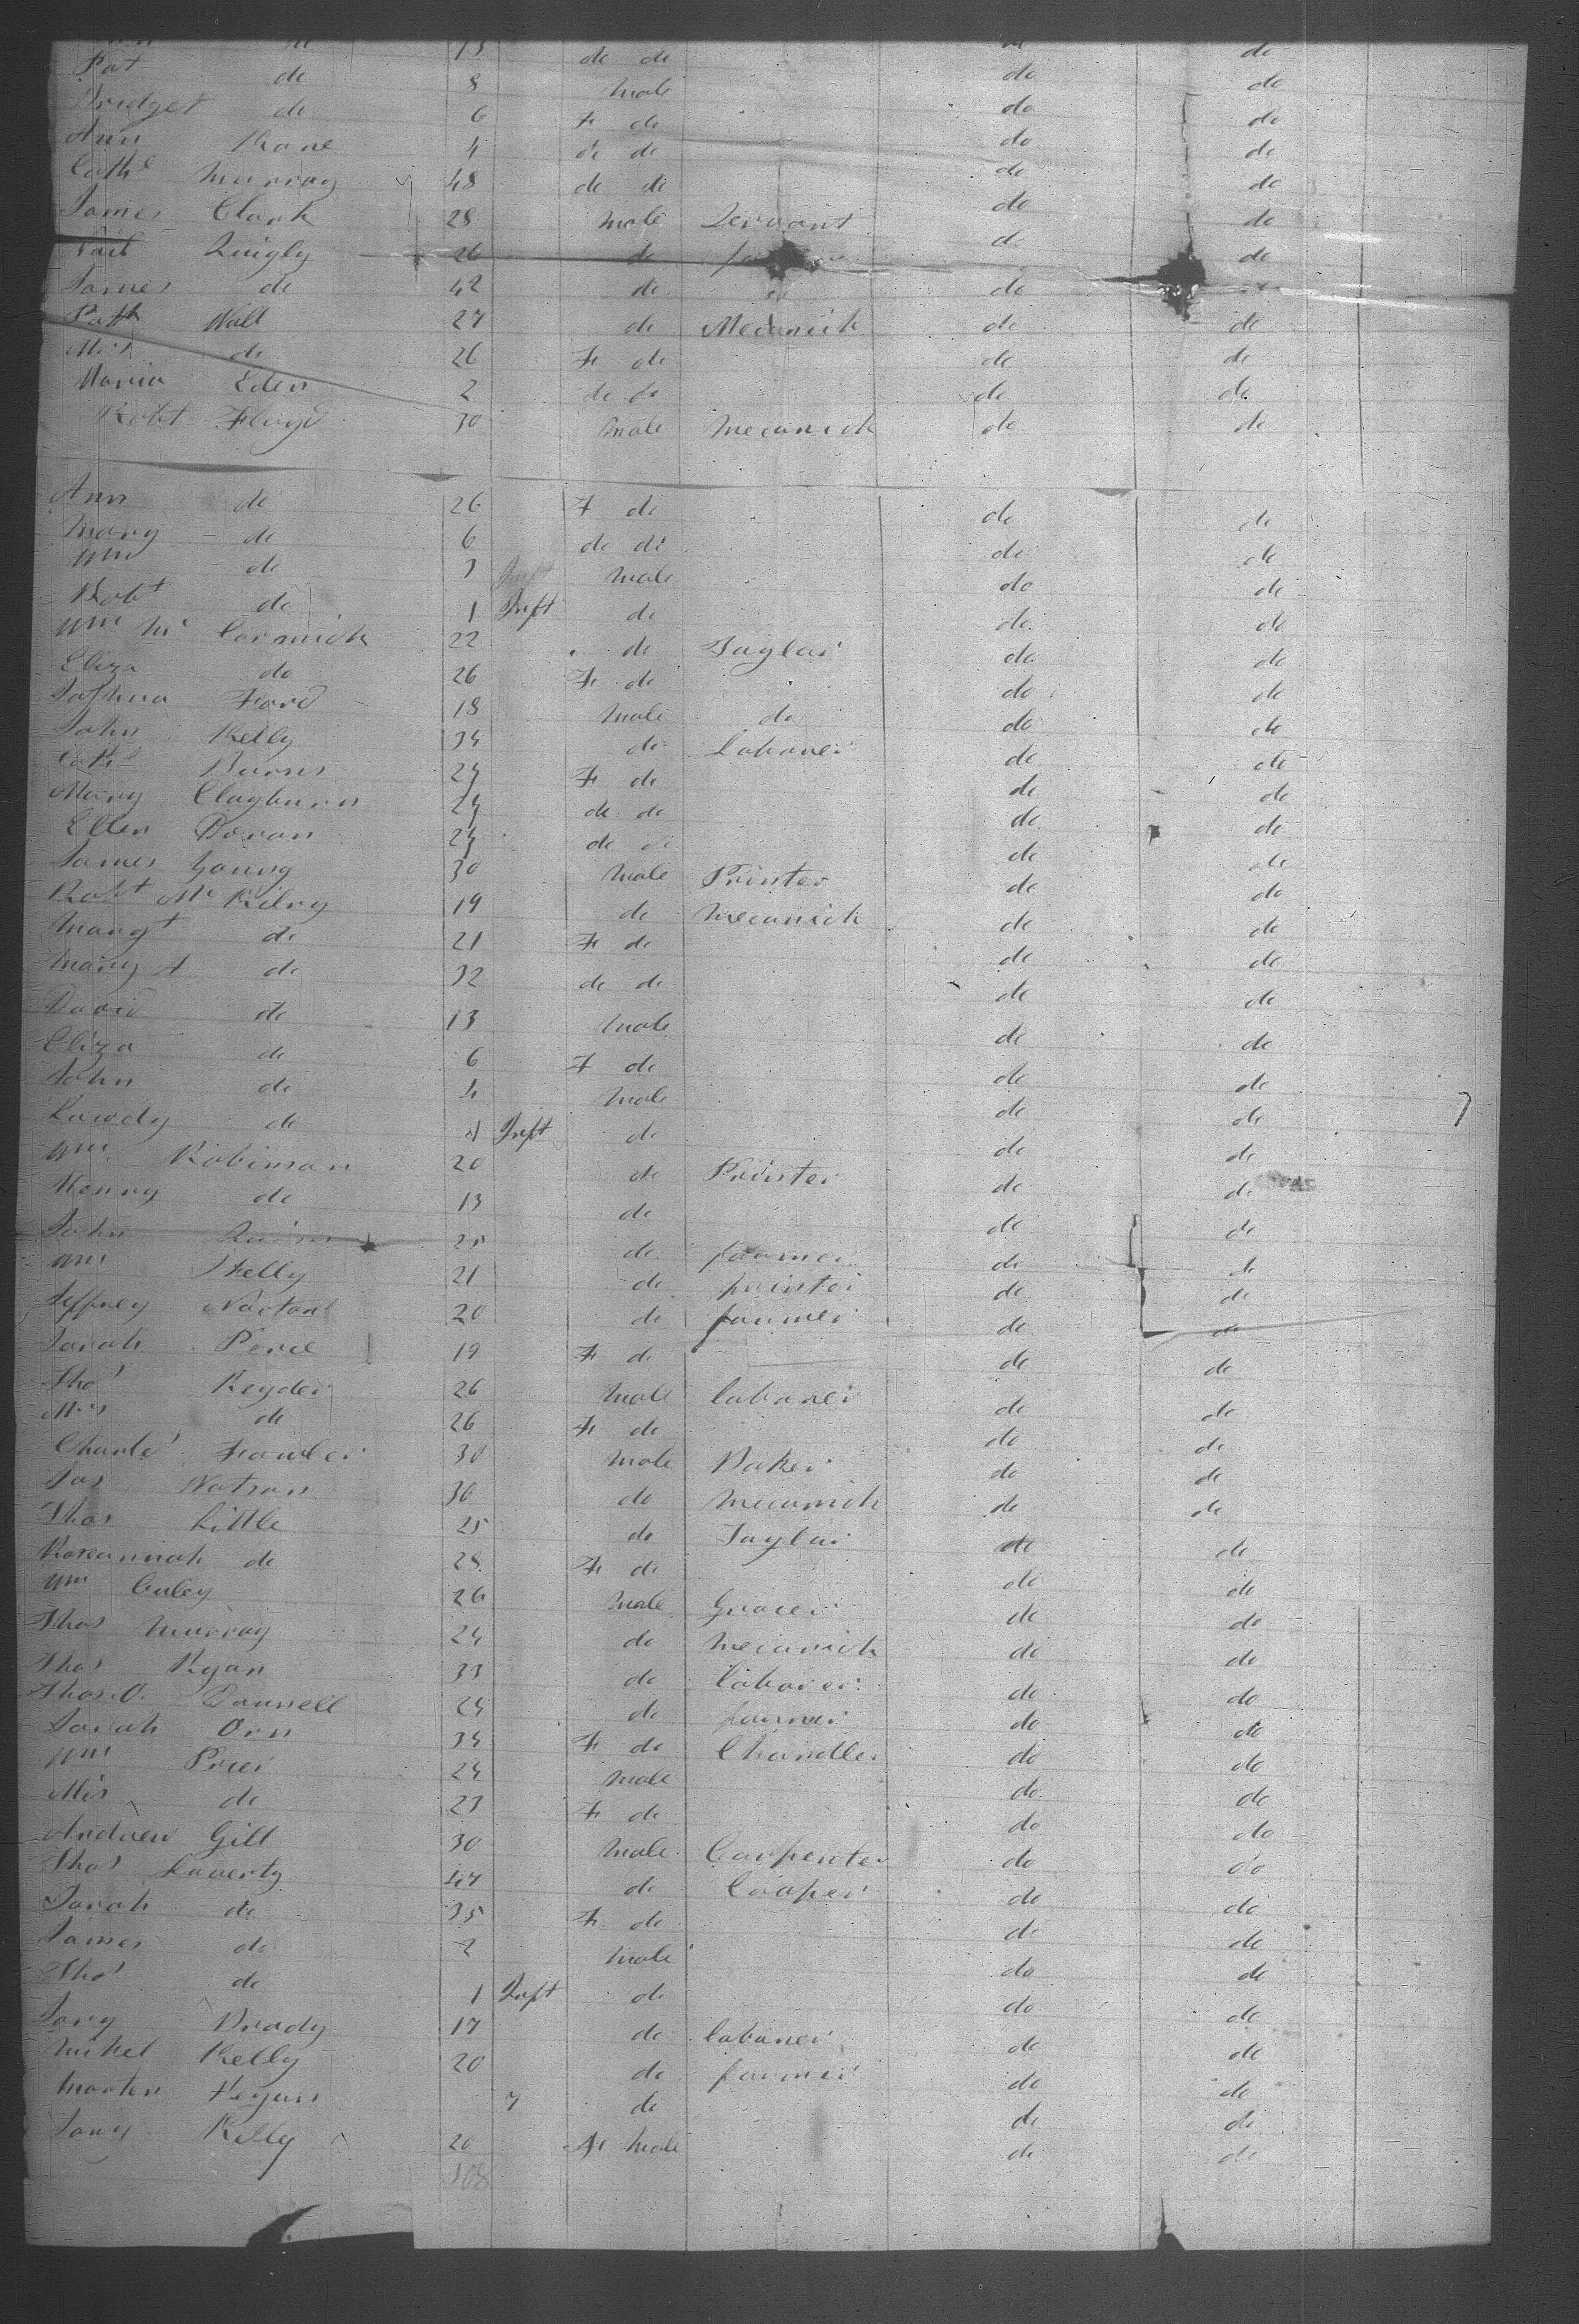 de 13 de de do do
Pat de 8 Male do do
Bridget de 6 F de do do
Ann Kane 4 de de do do
Cathe Murray 48 de de do do
James Clark 28 Male Servant do do
Quigly 26 de do do
James de 42 de do do
Patk Walt 27 de Mecanick do do
Mrs de 26 F de do do
Maria Eden 2 de de do do
Robt Floyd 30 Male Mecanick do do
Ann de 26 F de do do
Mary de 6 de de do do
Wm de 3 Inft Male do do
Robt de 1 Inft de do do
Wm Mc Cormick 22 de Taylor do do
Eliza do 26 F de do do
Joshua Ford 18 Male do do do
John Kelly 34 de Laborer do do
Cathe Burns 24 F de do do
Mary Clayburn 24 de de do do
Ellen Doran 24 de de do do
James Young 30 Male Printer do do
Robt Mc Kelvy 19 de Mecanick do do
Margt de 21 F de do do
Mary A de 32 de de do do
David de 13 Male do do
Eliza de 6 F de do do
John de 4 Male do do
de 1 Inft de do do
Wm Robinson 20 de Printer do do
Henry de 13 de do do
John Quinn 25 de farmer do do
Wm Skelly 21 de printer do do
Jeffrey Norton 20 de farmer do do
Sarah Perce 19 F de do do
Thos Keyder 26 Male laborer do do
Mrs de 26 F de do do
Charles Fowler 30 Male Baker do do
Jas Watson 30 do Mecanick do do
Thos Little 25 do Taylor do do
Roseannah de 28 F de do do
Wm Culey 26 Male Grocer do do
Thos Murray 24 do Mecanick do do
Thos Ryan 33 do laborer do do
Thos O. Donnell 24 do farmer do do
Sarah Orn 34 F do Chandler do do
Wm Prier 24 Male do do
Mrs de 23 F de do do
Andrew Gill 30 Male Carpenter do do
Thos Laverty 47 de Cooper do do
Sarah de 35 F de do do
James do 2 Male do do
Thos de 1 Inft de do do
Brady 17 de laborer do do
Mikel Kelly 20 de farmer do do
Marten Keyan 7 de do do
Kelly 20 Fe Male do do
108